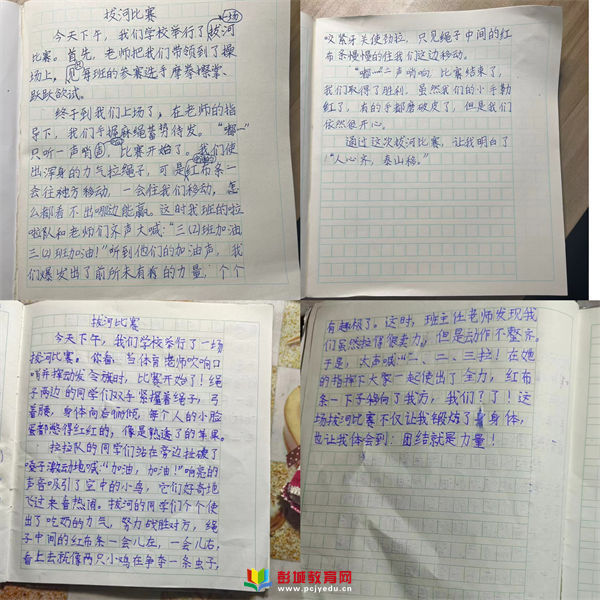 拔河比赛
今天下午，我们学校举行了一场拔河
比赛。首先，老师把我们带领到了操
场上，见各班的参赛选手摩拳擦掌、
跃跃欲试。
终于到我们上场了，在老师的指
导下，我们手握麻绳蓄势待发。“嘟一”
只听一声哨声，比赛开始了。我们使
出浑身的力气拉绳子，可是红布条一
会往对方移动，一会住我们移动，怎
么都看不出哪边能赢。这时我班的啦
啦队和老师们齐声大喊：“三（2）班加油
三（2）班加油！”听到他们的加油声，我
们爆发出了前所未有的力量，个个
咬紧牙关使劲拉，只见绳子中间的红
布条慢慢的住我们这边移动。
“嘟一”一声哨响，比赛结束了，
我们取得了胜利，虽然我们的小手勒
红了，有的手都磨破皮了，但是我们
依然很开心。
通过这次拔河比赛，让我明白了
“人心齐，泰山移。”
拔河比赛
今天下午，我们学校举行了一场
拔河比赛。你看，当体育老师吹响口
哨并挥动发令旗时，比赛开始了！绳
子两边的同学们双手紧握着绳子，弓
着腰，身体向后倾饱，每个人的小脸
蛋都憋得红红的，像是熟透了的苹果。
拉拉队的同学们站在旁边扯破了
嗓子激动地喊“加油，加油！”响亮的
声音吸引了空中的小鸟，它们好奇地
飞过来看热闹。拔河的同学们个个使
出了吃奶的力气，努力战胜对方，绳
子中间的红布条一会儿左，一会儿右，
看上去就像两只小鸡在争夺一条虫子，
有趣极了。这时，班主任老师发现我
们虽然拉得很卖力，但是动作不整齐。
于是，大声喊“一、二、三拉！在她
的指挥下大家一起使出了全力，红布
条一下子偏向了我方，我们？了！这
场拔河比赛不仅让我锻炼了身体，
也让我体会到：团结就是力量！
彭城教育网
www.pcjyedu.cn